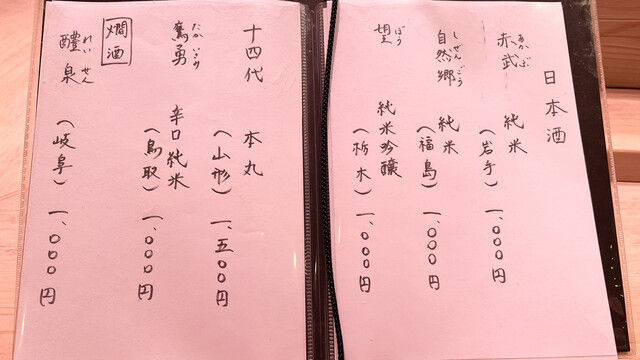 日本酒
赤武 純米
あかぶ
(岩手) 一、〇〇〇円
自然郷 純米
しぜんごう
(福島) 一、〇〇〇円
望 純米吟醸
ぼう
(栃木) 一、〇〇〇円
十四代 本丸
(山形) 一、五〇〇円
鷹勇 辛口純米
たかいさみ
(鳥取) 一、〇〇〇円
燗酒
醴泉
れいせん
(岐阜) 一、〇〇〇円